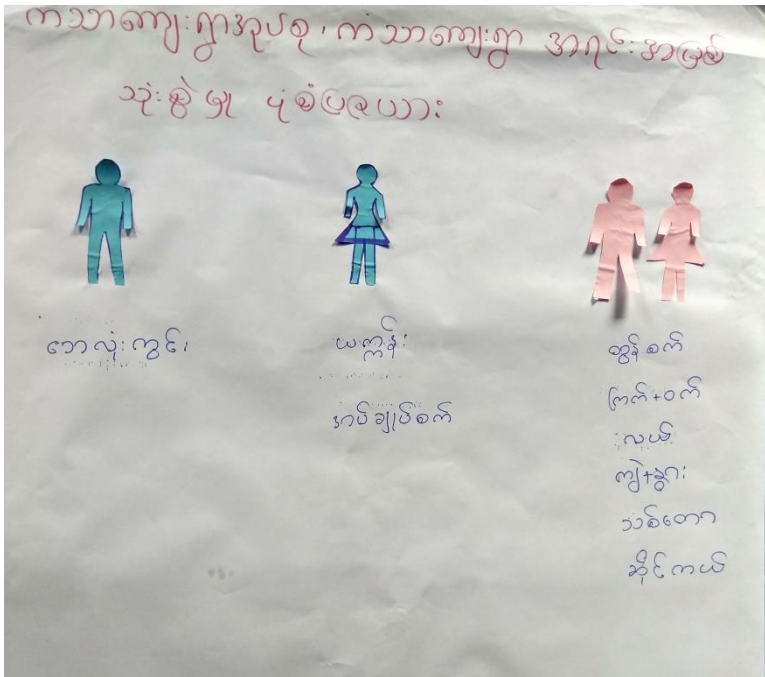 ကသာကျေးရွာအုပ်စု၊ ကသာကျေးရွာ အရင်းအမြစ်
သုံးစွဲမှု ပုံစံပြဇယား
ဘောလုံးကွင်း
ယက္ကန်း
အပ်ချုပ်စက်
ထွန်စက်
ကြက်+ဝက်
လယ်
ကျွဲ+နွား
သစ်တော
ဆိုင်ကယ်